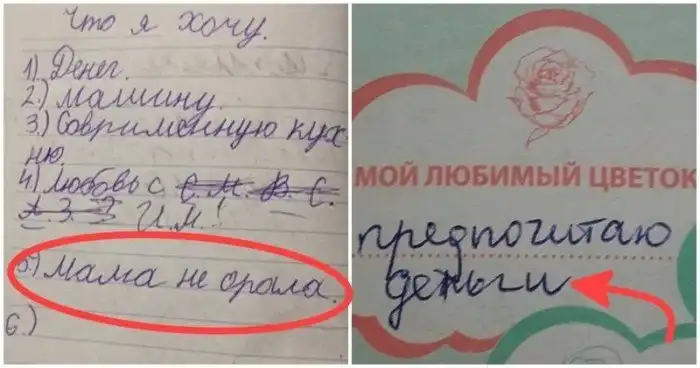 Что я хочу.
1) Денег.
2.) машину.
3.) Соврименную кух-
ню.
4) любовь с С. М. В. С.
А. З. И.М.!
5.) Мама не орала.
6.)
МОЙ ЛЮБИМЫЙ ЦВЕТОК
предпочитаю
деньги